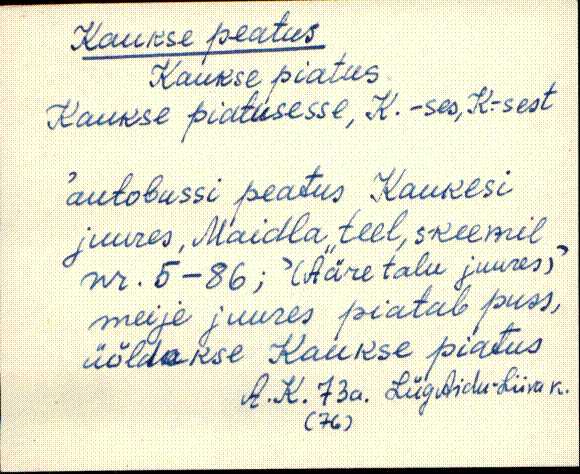 Kaukse peatus
Kaukse piatus
Kaukse piatusesse, K.-ses, K-sest
'autobussi peatus Kaukesi
juures, Maidla teel, skeemil
nr. 5-86; '(Ääretalu juures)'
meije juures piatab puss,
üöldakse Kaukse piatus
A.K. 73a. LügAidu-Liiva k.
(76)